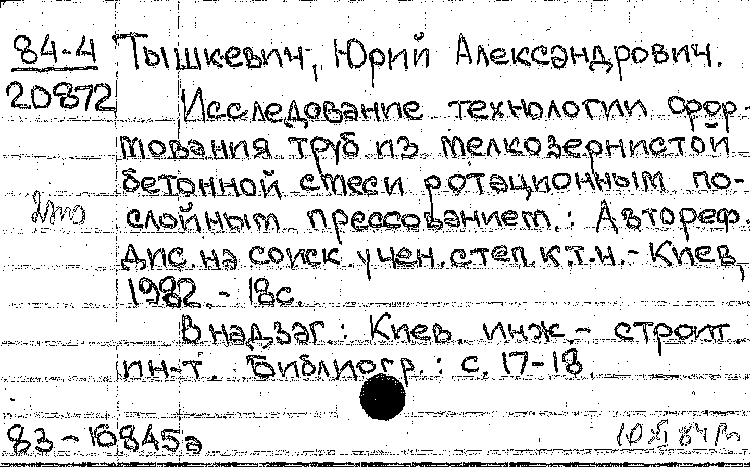 84-4 Тышкевич, Юрий Александрович.
20872 Исследование технологии фор-
мования труб из мелкозернистой
бетонной смеси ротационным по-
слойным прессованием.: Автореф.
дис. на соиск. учен. степ. к.т.н. - Киев,
1982. - 18с.
В надзаг.: Киев. инж.- строит.
ин-т. Библиогр.: с. 17-18.
83-16845а
10 XI 84